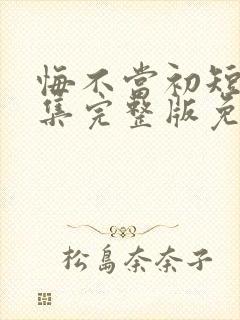 悔不当初短
集完整版免
松島奈奈子